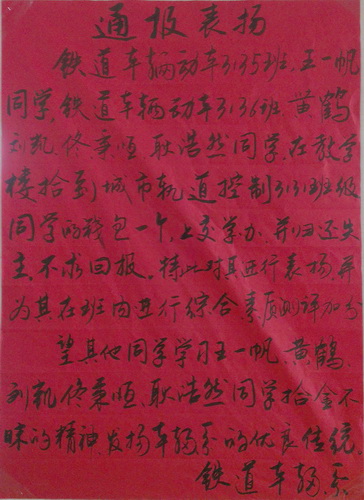 通报表扬
铁道车辆动车3135班、王一帆
同学,铁道车辆动车3136班、黄鹤
刘凯、佟秉恒、耿浩然同学,在教学
楼拾到城市轨道控制3131班班级
同学的钱包一个,上交学办,并归还失
主,不求回报。特此对其进行表扬,并
为其在班内进行综合素质测评加分
望其他同学学习王一帆、黄鹤、
刘凯佟秉恒、耿浩然同学拾金不
昧的精神,发扬车辆系的优良传统。
铁道车辆系